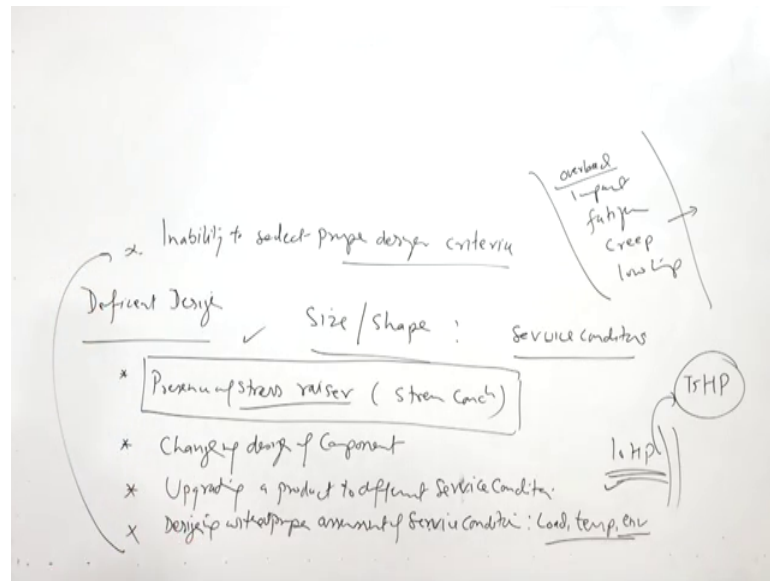 overload
Impact
fatigue
creep
low temp
x. Inability to select prope design criteria
Deficient Design
Size / Shape : Service Conditions
* Presence of stress raiser ( Stress Conc )
* Change of design of Component
10 HP
75 HP
* Upgrading a product to different Service Condition
x Designing without proper assessment of Service Condition : Load, temp, env